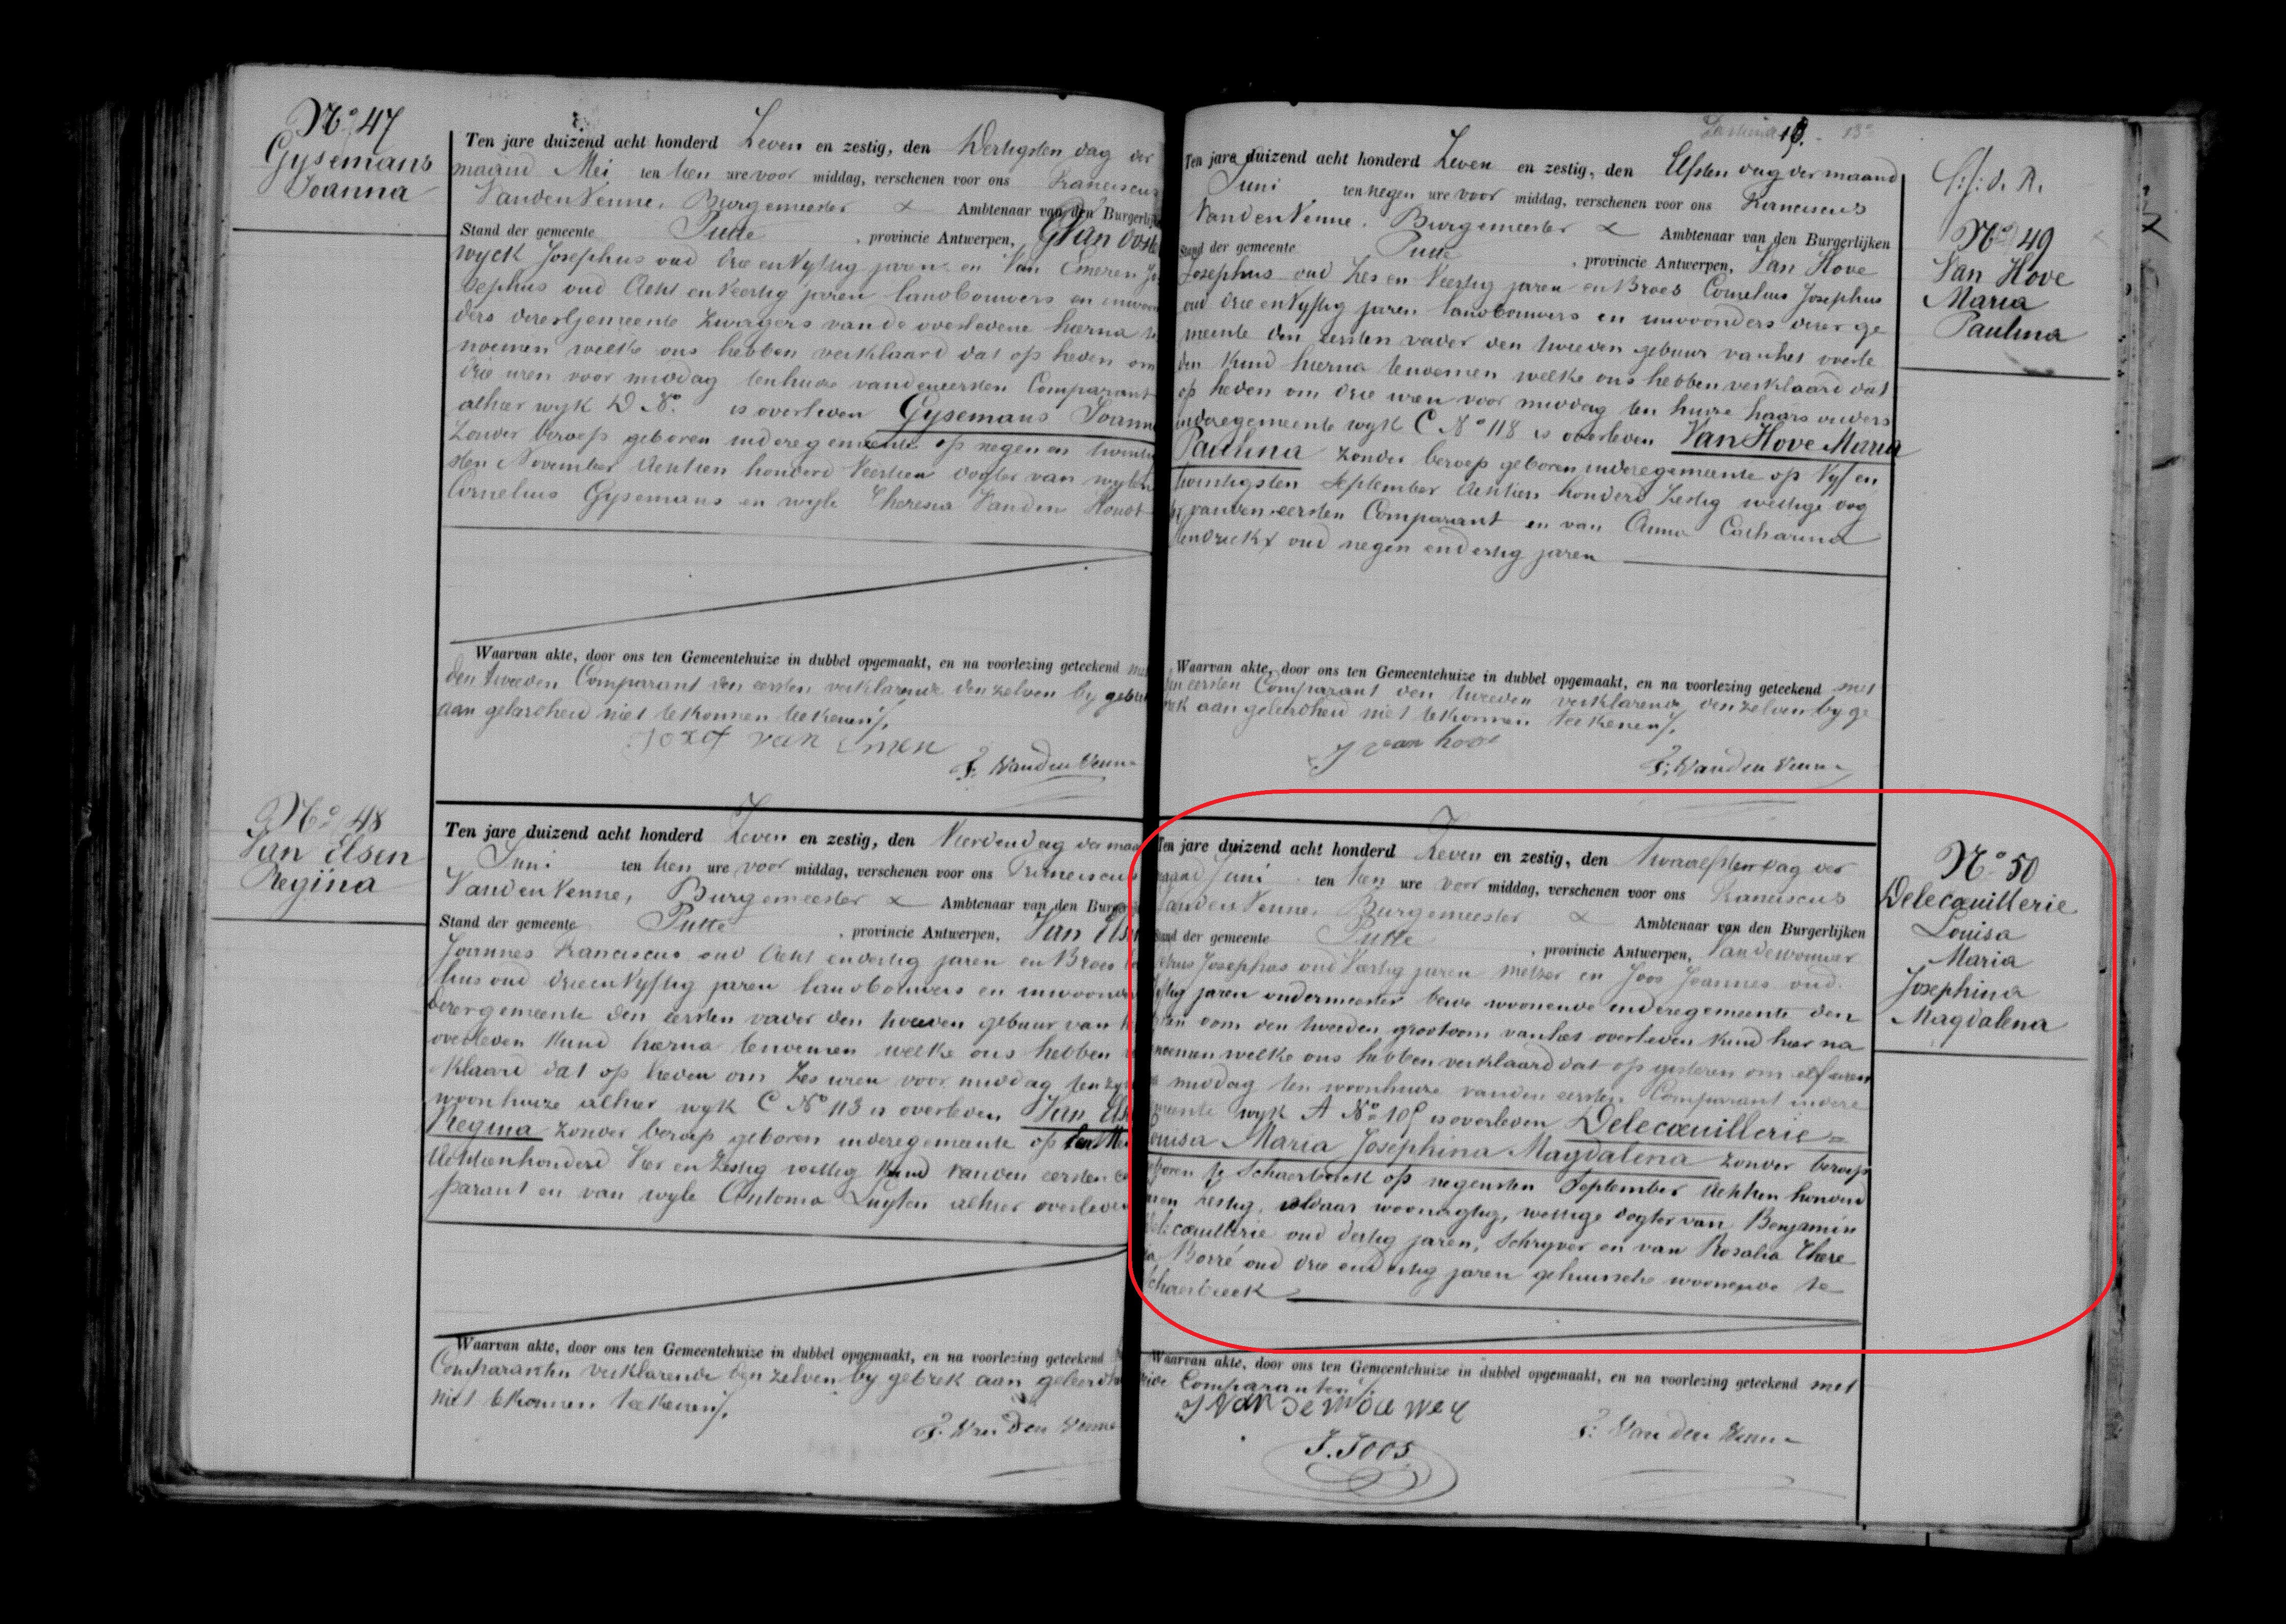 Nº 47
Gysemans
Joanna
Ten jare duizend acht honderd Zeven en zestig, den Dertigsten dag der
maand Mei ten tien ure voor middag, verschenen voor ons Franciscus
Van den Venne, Burgemeester Ambtenaar van den Burgerlij
Stand der gemeente Putte, provincie Antwerpen, Van Ooste
wyck Josephus oud drie en Vyftig jaren en Van Emeren Jo
sephus oud Acht en Veertig jaren landbouwers en inwoon
ders dezer Gemeente Zwagers van de overledene hierna te
noemen welke ons hebben verklaard dat op heden om
drie uren voor middag ten huize van den eersten Comparant
alhier wyk D Nº is overleden Gysemans Joanna
Zonder beroep geboren in deze gemeente op negen en twintig
sten November Achtien honderd Veertien dogter van wylen
Cornelius Gysemans en wyle Theresia Vanden Houdt
Waarvan akte, door ons ten Gemeentehuize in dubbel opgemaakt, en na voorlezing geteekend met
den tweeden Comparant den eersten verklarende denzelven by gebrek
aan geleerdheid niet te konnen teekenen ./.
Jozef van Emen
F. Van den Venne
Nº 48
Van Elsen
Regina
Ten jare duizend acht honderd Zeven en zestig, den Vierden dag der maa
Juni ten tien ure voor middag, verschenen voor ons Franciscus
Van den Venne, Burgemeester Ambtenaar van den Burge
Stand der gemeente Putte, provincie Antwerpen, Van Els
Joannes Franciscus oud Acht en dertig jaren en Broes
lius oud drie en Vyftig jaren landbouwers en inwoonde
dezer gemeente den eersten vader den tweeden gebuur van h
overleden Kind hierna te noemen welke ons hebben v
klaard dat op heden om Zes uren voor middag ten zyn
woonhuize alhier wyk C Nº 113 is overleden Van Els
Regina zonder beroep geboren in deze gemeente op
Achtienhonderd Vier en Zestig wettig Kind van den eersten
parant en van wyle Antonia Luyten alhier overleden
Waarvan akte, door ons ten Gemeentehuize in dubbel opgemaakt, en na voorlezing geteekend
Comparanten verklarende denzelven by gebrek aan geleerdh
niet te konnen teekenen ./.
F. Van den Venne
Ten jare duizend acht honderd Zeven en zestig, den Elfsten dag der maand
Juni ten negen ure voor middag, verschenen voor ons Franciscus
Van den Venne, Burgemeester Ambtenaar van den Burgerlijken
Stand der gemeente Putte, provincie Antwerpen, Van Hove
Josephus oud Zes en Veertig jaren en Broes Cornelius Josephus
oud drie en Vyftig jaren landbouwers en inwoonders dezer ge
meente den eersten vader den tweeden gebuur van het overle
den Kind hierna te noemen welke ons hebben verklaard dat
op heden om drie uren voor middag ten huize haars ouders
in deze gemeente wyk C Nº 118 is overleden Van Hove Maria
Paulina zonder beroep geboren in deze gemeente op Vyf en
twintigsten September Achtien honderd Zestig wettige dog
van den eersten Comparant en van Anna Catharina
Hendrickx oud negen en dertig jaren
Waarvan akte, door ons ten Gemeentehuize in dubbel opgemaakt, en na voorlezing geteekend met
den eersten Comparant den tweeden verklarende denzelven by ge
brek aan geleerdheid niet te konnen teekenen ./.
J van hove
F. Van den Venne
Nº 49
Van Hove
Maria
Paulina
Ten jare duizend acht honderd Zeven en zestig, den twaalfsten dag der
maand Juni ten tien ure voor middag, verschenen voor ons Franciscus
Van den Venne, Burgemeester Ambtenaar van den Burgerlijken
Stand der gemeente Putte, provincie Antwerpen, Vandewouwer
Josephus oud Veertig jaren metser en Joos Joannes oud
jaren ondermeester beide woonende in deze gemeente den
eersten oom den tweeden grootoom van het overleden Kind hier na
te noemen welke ons hebben verklaard dat op gisteren om elf uren
middag ten woonhuize van den eersten Comparant in deze
gemeente wyk A Nº is overleden Delecœuillerie =
Louisa Maria Josephina Magdalena zonder beroep
geboren te Schaerbeek op negensten September Achtien honderd
en zestig, aldaar woonagtig, wettige dogter van Benjamin
Delecœuillerie oud dertig jaren, schryver en van Rosalia There
sia Borré oud drie en dertig jaren gehuisschte woonende te
Schaerbeek
Waarvan akte, door ons ten Gemeentehuize in dubbel opgemaakt, en na voorlezing geteekend met
beide Comparanten ./.
J Van De Wouwer
J. Joos
F. Van den Venne
Nº 50
Delecœuillerie
Louisa
Maria
Josephina
Magdalena